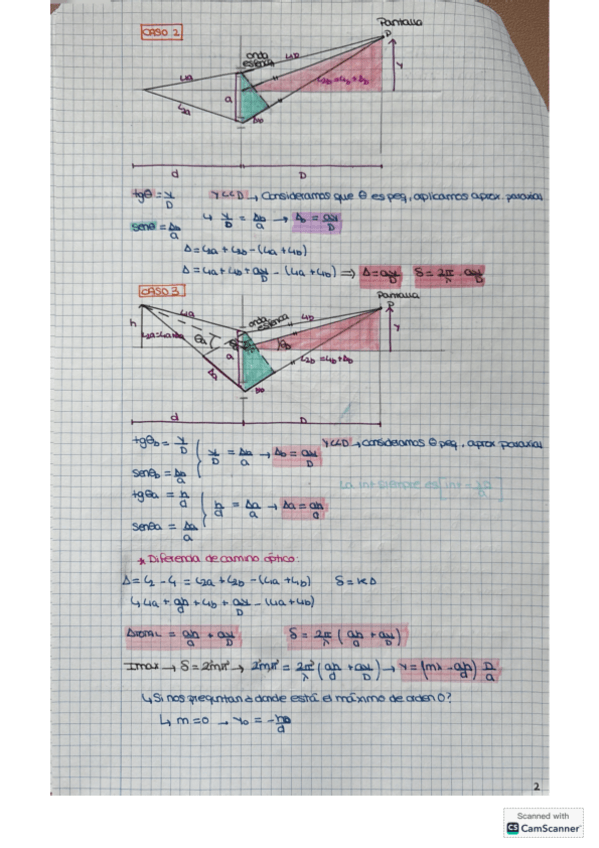 Pantalla
CASO 2
P
onda
esférica
L1D
L1a
L2b = L1b + Δb
y
a
L2a
Δb
d
D
tgθ = y/D
y<<D → Consideramos que θ es peq, aplicamos aprox. paraxias
senθ = Δb/a
↳ y/D = Δb/a → Δb = ay/D
Δ = L2a + L2b - (L1a + L1b)
Δ = L1a + L1b + ay/D - (L1a + L1b) ⇒ Δ = ay/D δ = 2π/λ · ay/D
CASO 3
Pantalla
P
L1a
onda
esférica
L1D
h
θa
θb
y
a
L2b = L1b + Δb
Δa
Δb
d
D
tgθb = y/D
y/D = Δb/a → Δb = ay/D
y<<D → consideramos θ peq, aprox paraxias
senθb = Δb/a
tgθa = h/d
h/d = Δa/a → Δa = ah/d
senθa = Δa/a
* Diferencia de camino óptico:
Δ = L2 - L1 = L2a + L2b - (L1a + L1b) δ = kΔ
↳ L1a + ah/d + L1b + ay/D - (L1a + L1b)
ΔTOTAL = ah/d + ay/D δ = 2π/λ (ah/d + ay/D)
Imax → δ = 2mπ → 2mπ = 2π/λ (ah/d + ay/D) → y = (mλ - ah/d) D/a
↳ Si nos preguntan ¿donde está el máximo de orden 0?
↳ m = 0 → y0 = -hD/d
2
Scanned with
CS CamScanner